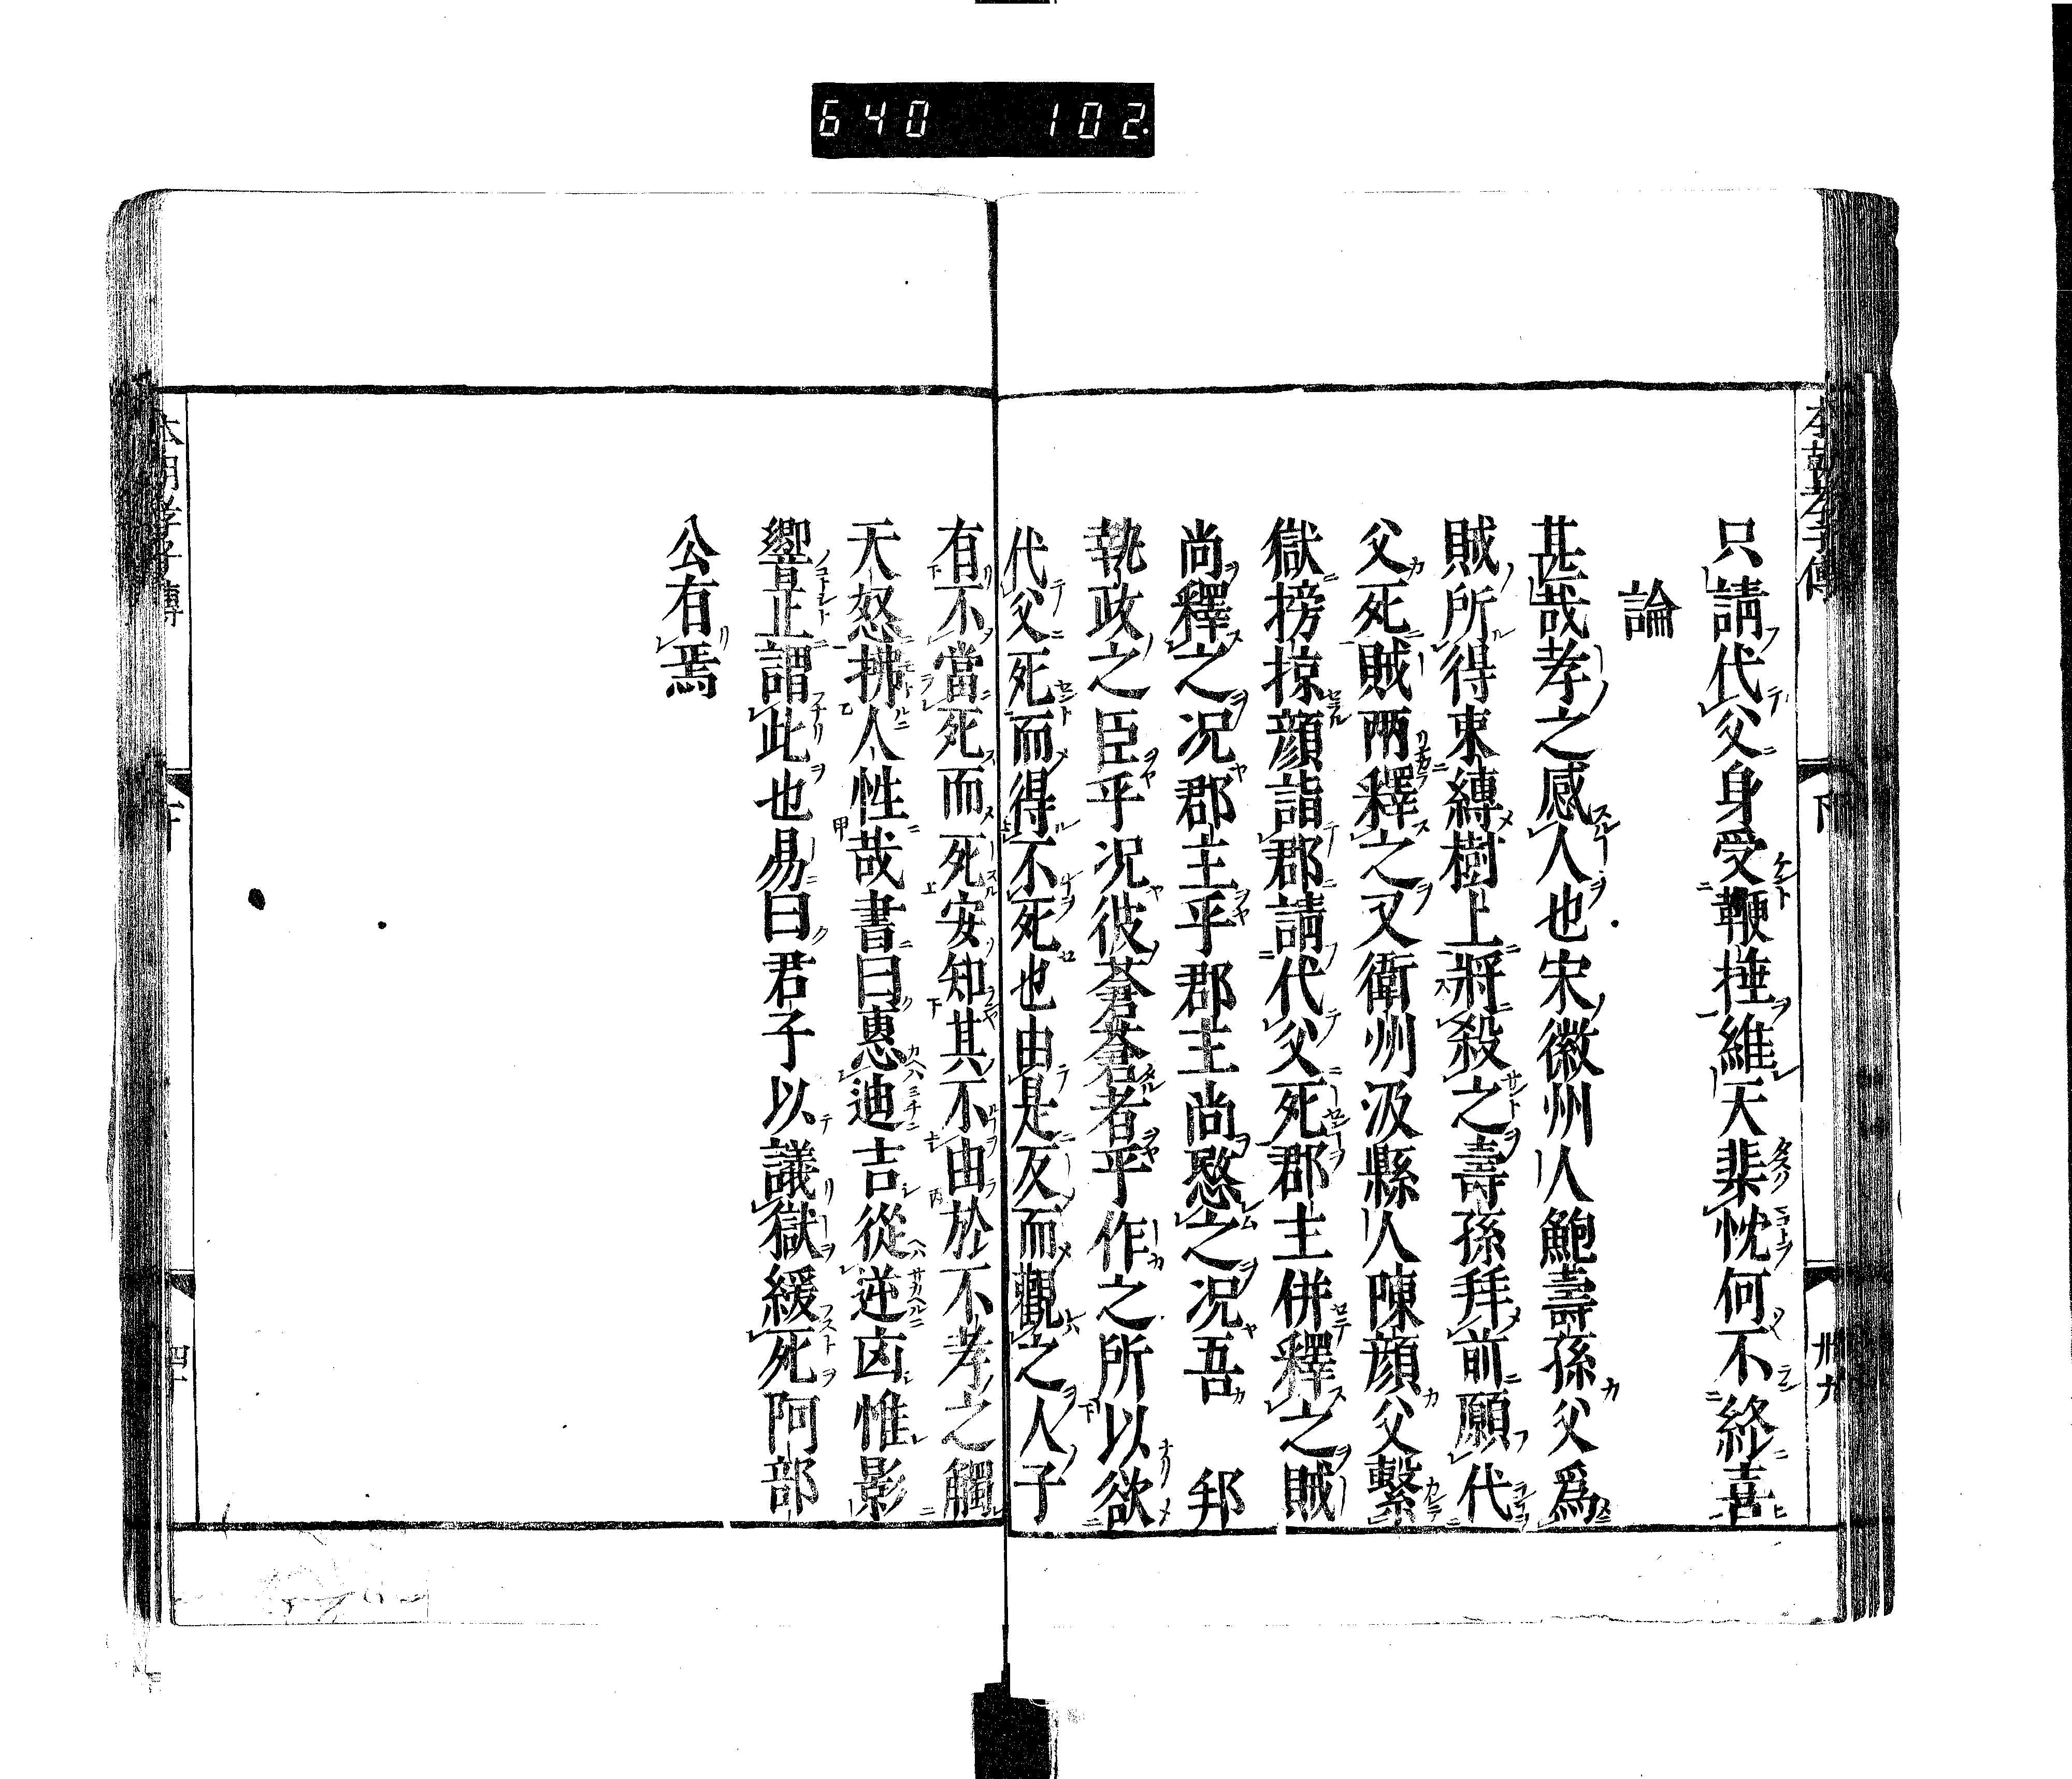 640 102
本朝孝子傳 下 卅九
只請代父身受鞭捶維天棐忱何不終喜
論
甚哉孝之感人也宋徽州人鮑壽孫父爲
賊所得束縛樹上將殺之壽孫拜前願代
父死賊兩釋之又衛州汲縣人陳顔父繫
獄搒掠顔詣郡請代父死郡主併釋之賊
尚釋之况郡主乎郡主尚愍之况吾 邦
執政之臣乎况彼蒼蒼者乎作之所以欲
代父死而得不死也由是反而觀之人子
有不當死而死安知其不由於不孝之觸
天怒拂人性哉書曰惠迪吉從逆凶惟影
響正謂此也易曰君子以議獄緩死阿部
公有焉
本朝孝子傳 下 四十